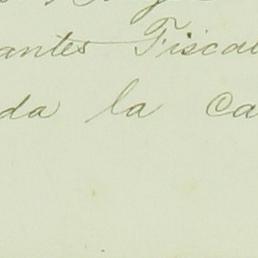 antes Fiscal
da la Ca